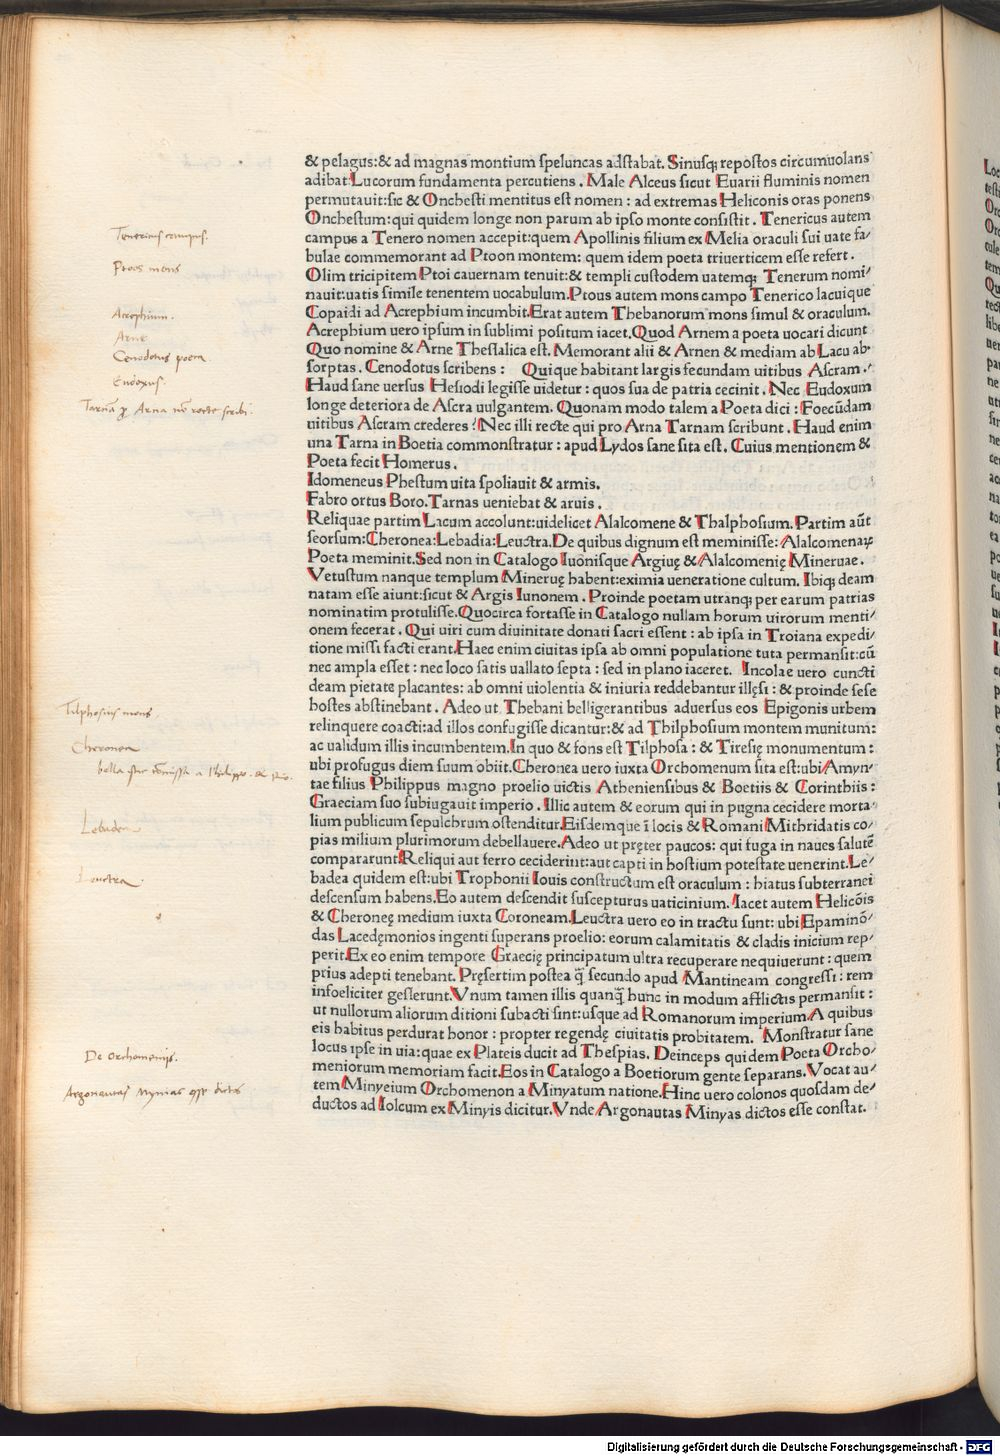 & pelagus:& ad magnas montium speluncas adstabat. Sinusq; repostos circumuolans
adibat:Lucorum fundamenta percutiens . Male Alceus sicut Euarii fluminis nomen
permutauit:sic & Onchesti mentitus est nomen : ad extremas Heliconis oras ponens
Onchestum:qui quidem longe non parum ab ipso monte consistit . Tenericus autem
campus a Tenero nomen accepit:quem Apollinis filium ex Melia oraculi sui uate fa/
bulae commemorant ad Ptoon montem: quem idem poeta triuerticem esse refert .
Olim tricipitem Ptoi cauernam tenuit:& templi custodem uatemq; Tenerum nomi/
nauit:uatis simile tenentem uocabulum.Ptous autem mons campo Tenerico lacuique
Copaidi ad Acrephium incumbit.Erat autem Thebanorum mons simul & oraculum.
Acrephium uero ipsum in sublimi positum iacet.Quod Arnem a poeta uocari dicunt
Quo nomine & Arne Thessalica est.Memorant alii & Arnen & mediam ab Lacu ab-
sorptas . Cenodotus scribens : Quique habitant largis fecundam uitibus Ascram .
Haud sane uersus Hesiodi legisse uidetur: quos sua de patria cecinit . Nec Eudoxum
longe deteriora de Ascra uulgantem. Quonam modo talem a Poeta dici : Foecūdam
uitibus Ascram crederes ? Nec illi recte qui pro Arna Tarnam scribunt . Haud enim
una Tarna in Boetia commonstratur : apud Lydos sane sita est. Cuius mentionem &
Poeta fecit Homerus .
Idomeneus Phestum uita spoliauit & armis.
Fabro ortus Boro. Tarnas ueniebat & aruis .
Reliquae partim Lacum accolunt:uidelicet Alalcomene & Thalphosium. Partim aūt
seorsum:Cheronea: Lebadia: Leuctra. De quibus dignum est meminisse: Alalcomenaꝝ
Poeta meminit. Sed non in Catalogo Iuōnisque Argiuę & Alalcomenię Mineruae .
Vetustum nanque templum Mineruę habent:eximia ueneratione cultum. Ibiq; deam
natam esse aiunt:sicut & Argis Iunonem . Proinde poetam utranq; per earum patrias
nominatim protulisse.Quocirca fortasse in Catalogo nullam horum uirorum menti/
onem fecerat . Qui uiri cum diuinitate donati sacri essent : ab ipsa in Troiana expedi/
tione missi facti erant.Haec enim ciuitas ipsa ab omni populatione tuta permansit:cū
nec ampla esset : nec loco satis uallato septa : sed in plano iaceret. Incolae uero cuncti
deam pietate placantes: ab omni uiolentia & iniuria reddebantur illęsi : & proinde sese
hostes abstinebant . Adeo ut Thebani belligerantibus aduersus eos Epigonis urbem
relinquere coacti:ad illos confugisse dicantur:& ad Thilphosium montem munitum:
ac ualidum illis incumbentem.In quo & fons est Tilphosa : & Tiresię monumentum :
ubi profugus diem suum obiit.Cheronea uero iuxta Orchomenum sita est:ubi Amyn/
tae filius Philippus magno proelio uictis Atheniensibus & Boetiis & Corinthiis :
Graeciam suo subiugauit imperio . Illic autem & eorum qui in pugna cecidere morta/
lium publicum sepulchrum ostenditur.Eisdemque ī locis & Romani Mithridatis co/
pias milium plurimorum debellauere. Adeo ut pręter paucos: qui fuga in naues salutē
compararunt.Reliqui aut ferro ceciderint:aut capti in hostium potestate uenerint.Le/
badea quidem est:ubi Trophonii Iouis constructum est oraculum : hiatus subterranei
descensum habens. Eo autem descendit suscepturus uaticinium. Iacet autem Helicōis
& Cheroneę medium iuxta Coroneam.Leuctra uero eo in tractu sunt: ubi Epaminō/
das Lacedęmonios ingenti superans proelio: eorum calamitatis & cladis inicium rep/
perit.Ex eo enim tempore Graecię principatum ultra recuperare nequiuerunt : quem
prius adepti tenebant. Pręsertim postea q̄ secundo apud Mantineam congressi : rem
infoeliciter gesserunt.Vnum tamen illis quanq̄ hunc in modum afflictis permansit :
ut nullorum aliorum ditioni subacti sint:usque ad Romanorum imperium.A quibus
eis habitus perdurat honor : propter regendę ciuitatis probitatem. Monstratur sane
locus ipse in uia:quae ex Plateis ducit ad Thespias. Deinceps quidem Poeta Orcho/
meniorum memoriam facit.Eos in Catalogo a Boetiorum gente separans. Vocat au/
tem Minyeium Orchomenon a Minyatum natione.Hinc uero colonos quosdam de/
ductos ad Iolcum ex Minyis dicitur. Vnde Argonautas Minyas dictos esse constat.
Tenericus campus.
Ptoos mons
Acrephium.
Arne
Cenodotus poeta
Eudoxus.
Tarnā pro Arna non recte scribi.
Tilphosius mons.
Cheronea
Lebadea
Leuctra.
De Orchomenijs.
Argonautas Mynias
Digitalisierung gefördert durch die Deutsche Forschungsgemeinschaft - DFG